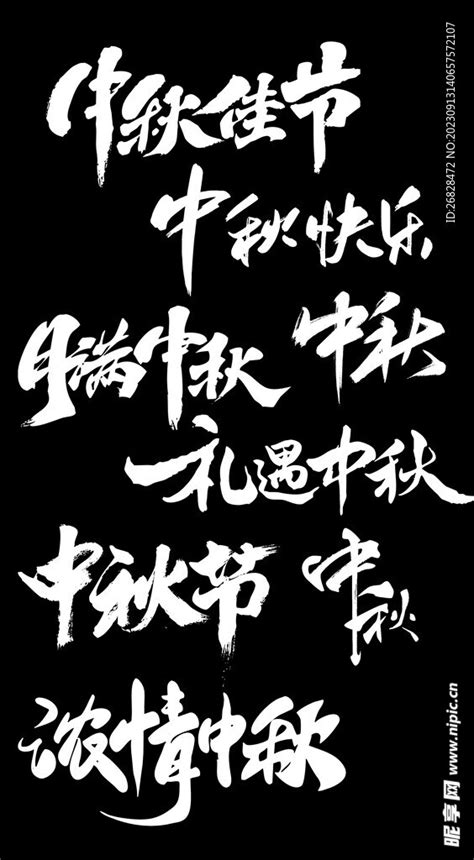 中秋佳节
中秋快乐
月满中秋
中秋
礼遇中秋
中秋节
中秋
浓情中秋
ID:26828472 NO:20230913140657572107
昵享网 www.nipic.cn